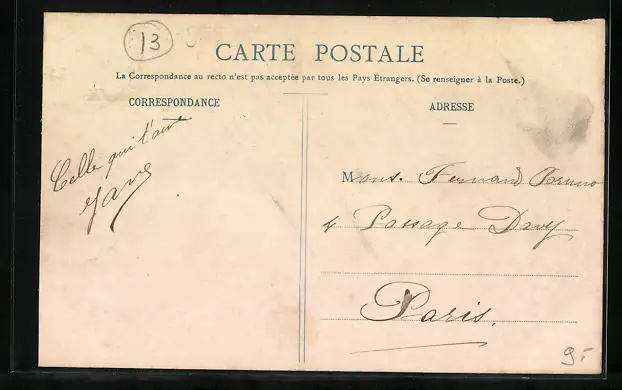 13
CARTE POSTALE
La Correspondance au recto n'est pas acceptée par tous les Pays Étrangers. (Se renseigner à la Poste.)
CORRESPONDANCE
ADRESSE
Celle qui t'aime
Mons. Fernand Bruno
4 Passage Davy
Paris.
9.-